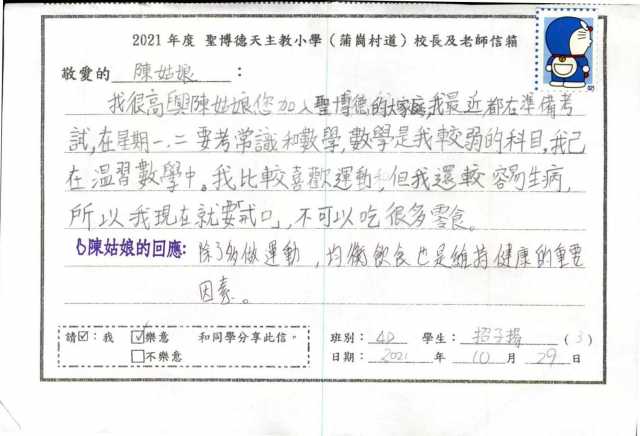 2021年度 聖博德天主教小學(蒲崗村道)校長及老師信箱
敬愛的 陳姑娘 :
我很高興陳姑娘您加入聖博德的大家庭,我最近都在準備考
試,在星期一.二要考常識和數學,數學是我較弱的科目,我已
在溫習數學中。我比較喜歡運動,但我還較容易生病,
所以我現在就要「戒口」,不可以吃很多零食。
陳姑娘的回應: 除了多做運動,均衡飲食也是維持健康的重要
因素。
請☑:我 ☑樂意 和同學分享此信。 班別: 4D 學生: 招子揚 (3)
☐不樂意 日期: 2021 年 10 月 29 日